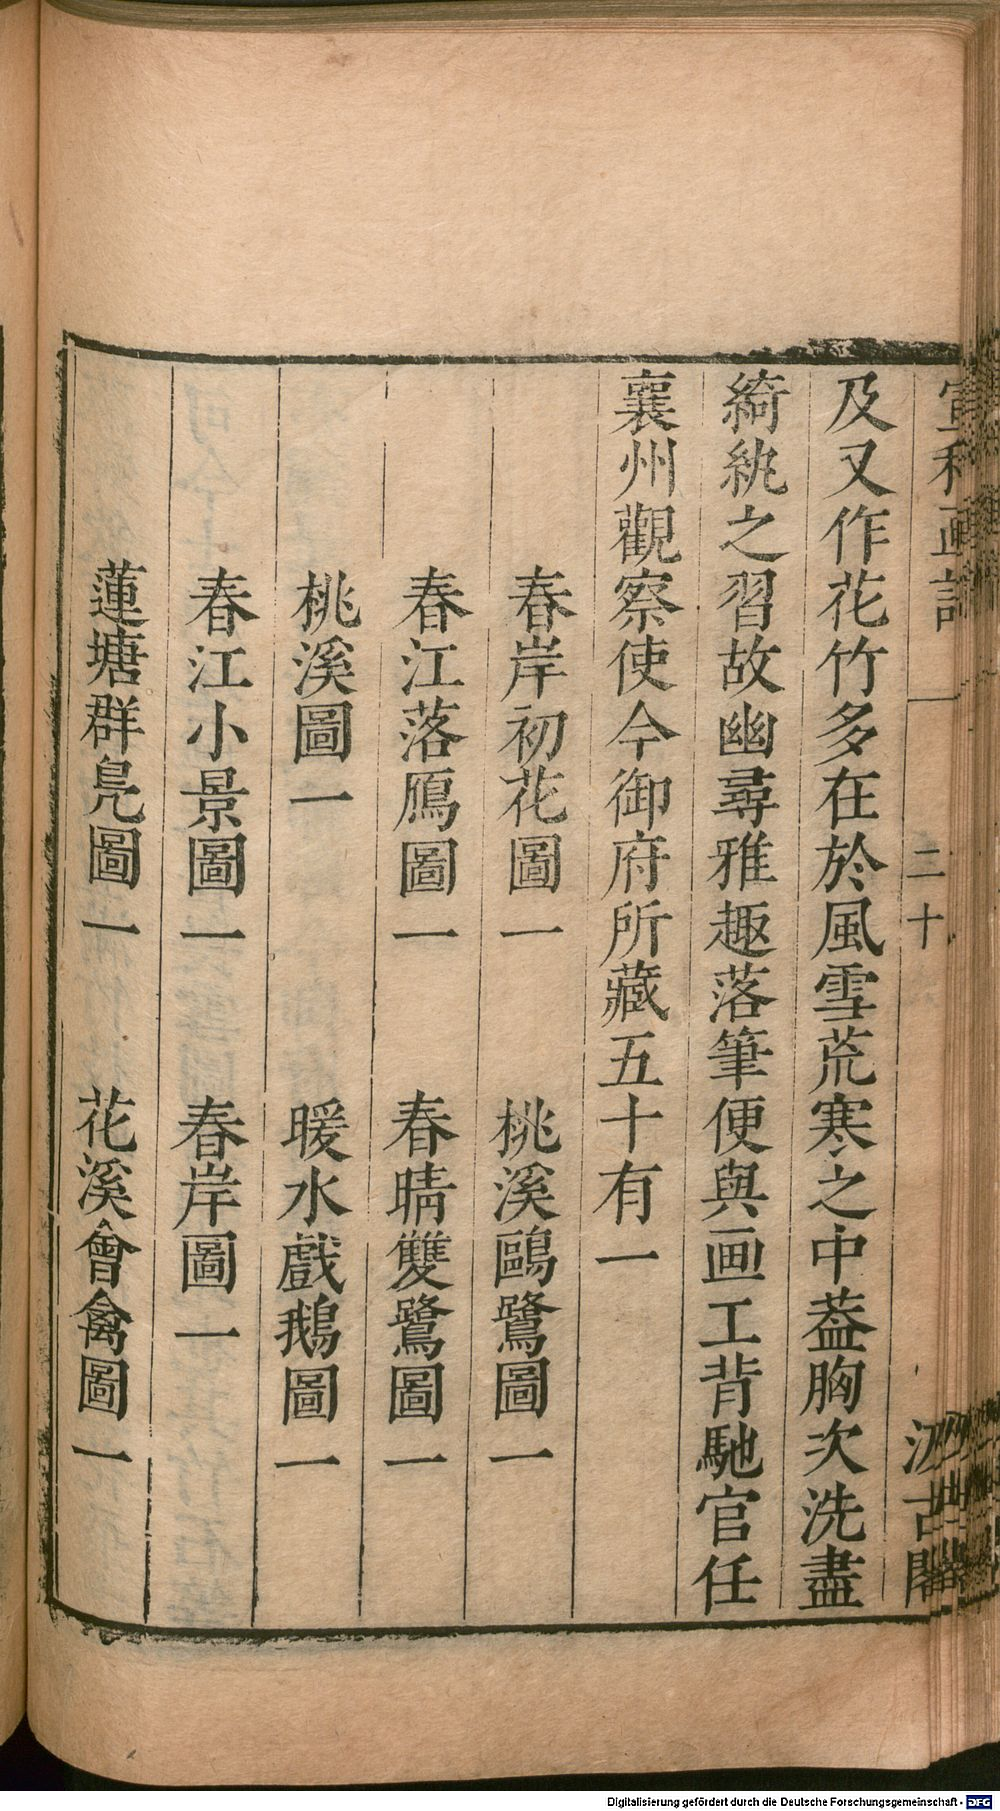 宣和画譜 二十 汲古閣
及又作花竹多在於風雪荒寒之中葢胸次洗盡
綺紈之習故幽尋雅趣落筆便與画工背馳官任
襄州觀察使今御府所藏五十有一
春岸初花圖一 桃溪鷗鷺圖一
春江落鴈圖一 春晴雙鷺圖一
桃溪圖一 暖水戲鵝圖一
春江小景圖一 春岸圖一
蓮塘群鳧圖一 花溪會禽圖一
Digitalisierung gefördert durch die Deutsche Forschungsgemeinschaft - DFG